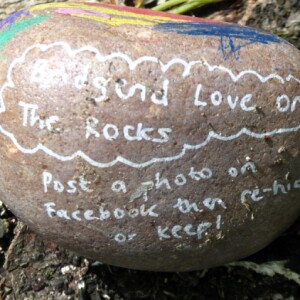 Bridgend Love On
The Rocks
Post a photo on
Facebook then re-hid
or keep!